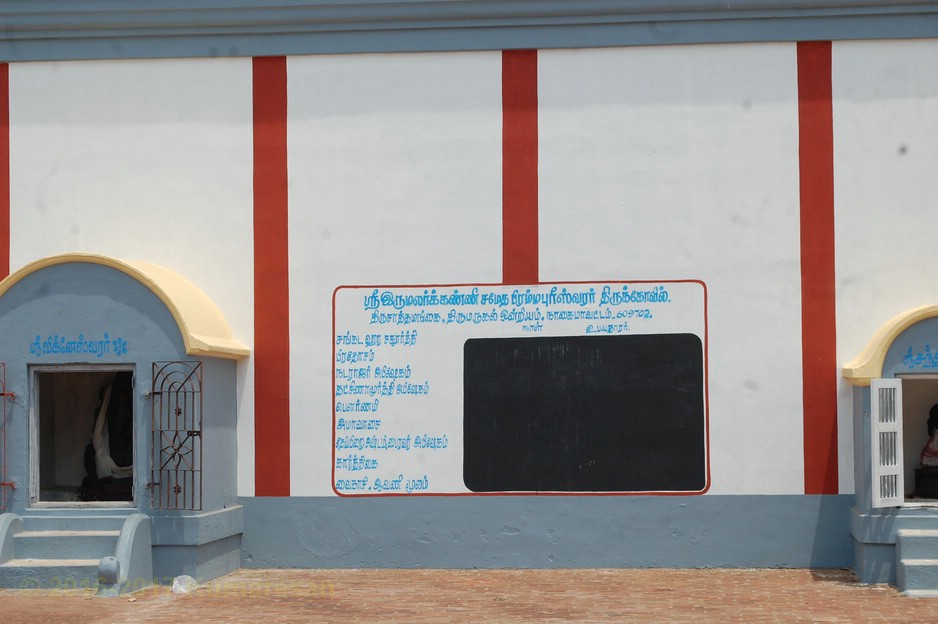 ஸ்ரீ இருமலர்க்கண்ணி சமேத பிரம்மபுரீஸ்வரர் திருக்கோவில்.
திருசாத்தமங்கை, திருமருகல் ஒன்றியம், நாகைமாவட்டம். 609702.
நாள் உபயதாரர்.
சங்கட ஹர சதுர்த்தி
பிரதோசம்
நடராஜர் அபிஷேகம்
தட்சிணாமூர்த்தி அபிஷேகம்
பௌர்ணமி
அமாவாசை
தேய்பிறை அஷ்டமி, பைரவர் அபிஷேகம்
கார்த்திகை
வைகாசி, ஆவணி மூலம்
ஸ்ரீ விக்னேஸ்வரர்